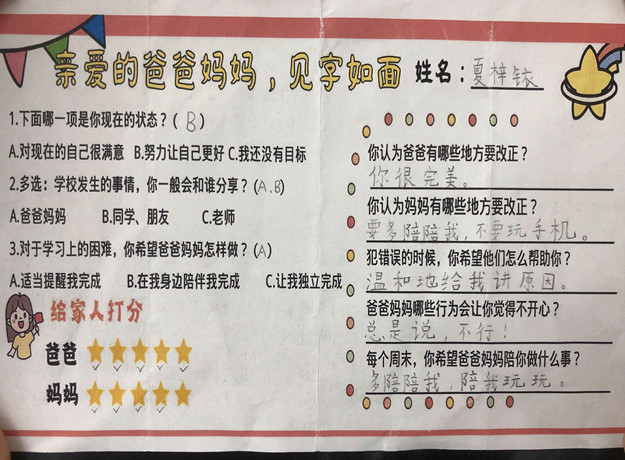 亲爱的爸爸妈妈，见字如面 姓名：夏梓铱
1.下面哪一项是你现在的状态？(B)
A.对现在的自己很满意 B.努力让自己更好 C.我还没有目标
2.多选：学校发生的事情，你一般会和谁分享？(A、B)
A.爸爸妈妈 B.同学、朋友 C.老师
3.对于学习上的困难，你希望爸爸妈妈怎样做？(A)
A.适当提醒我完成 B.在我身边陪伴我完成 C.让我独立完成
给家人打分
爸爸
妈妈
你认为爸爸有哪些地方要改正？
你很完美。
你认为妈妈有哪些地方要改正？
要多陪陪我，不要玩手机。
犯错误的时候，你希望他们怎么帮助你？
温和地给我讲原因。
爸爸妈妈哪些行为会让你觉得不开心？
总是说，不行！
每个周末，你希望爸爸妈妈陪你做什么事？
多陪陪我，陪我玩玩。